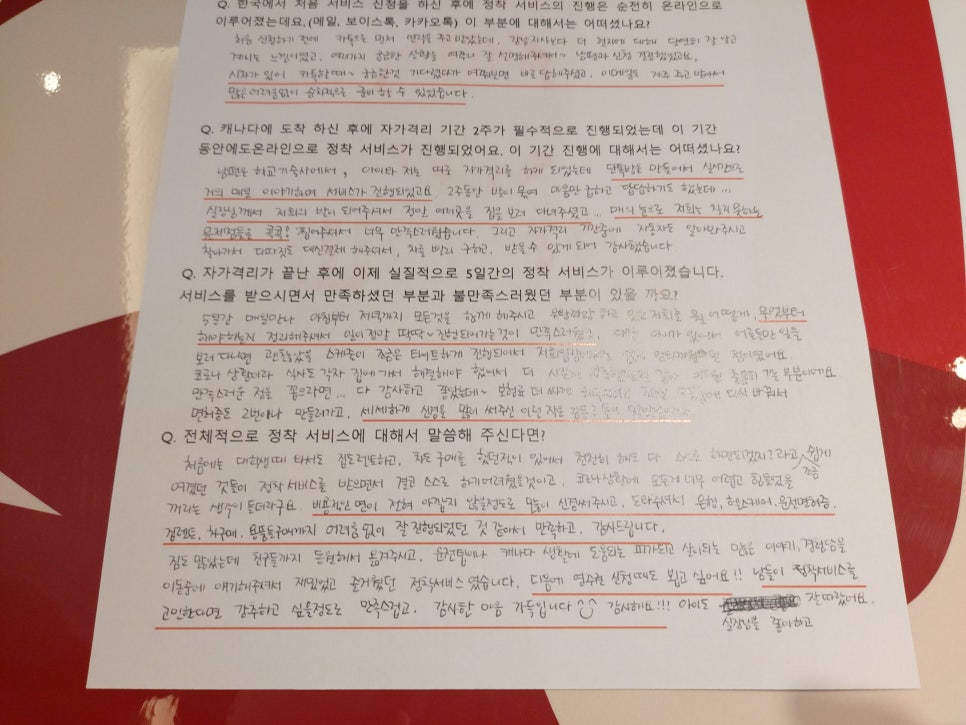 Q. 한국에서 처음 서비스 신청을 하신 후에 정착 서비스의 진행은 순전히 온라인으로
이루어졌는데요,(메일, 보이스톡, 카카오톡) 이 부분에 대해서는 어떠셨나요?
처음 신청하기 전에 카톡으로 먼저 연락을 주고 받았는데, 강남지사보다 더 현지에 대해 당연히 잘 알고
계시는 느낌이였고, 여러가지 궁금한 상황을 여쭈니 잘 설명해주셔서~ 남편과 신청 결정했었고요.
시차가 있어 카톡할때~ 궁금한것 기다렸다가 여쭤보면 바로 답해주셨고, 이메일도 자주 주고 받아서
많은 어려움없이 순차적으로 준비 할 수 있었습니다.
Q. 캐나다에 도착 하신 후에 자가격리 기간 2주가 필수적으로 진행되었는데 이 기간
동안에도온라인으로 정착 서비스가 진행되었어요. 이 기간 진행에 대해서는 어떠셨나요?
남편은 학교 기숙사에서, 아이와 저는 따로 자가격리를 하게 되었는데 단톡방을 만들어서 실시간으로
거의 매일 이야기하며 서비스가 진행되었고요. 2주동안 발이 묶여 마음만 급하고 답답하기도 했는데...
실장님께서 저희의 발이 되어주셔서 정말 여러곳을 집을 보러 다녀주셨고... 매의 눈으로 저희는 찾지 못하는
문제점들을 콕콕! 찝어주셔서 너무 만족스러웠습니다. 그리고 자가격리 기간중에 자동차도 알아봐주시고
찾아가서 디파짓도 대신결제 해주셔서, 차를 빨리 구하고, 받을 수 있게 되어 감사했습니다.
Q. 자가격리가 끝난 후에 이제 실질적으로 5일간의 정착 서비스가 이루어졌습니다.
서비스를 받으시면서 만족하셨던 부분과 불만족스러웠던 부분이 있을 까요?
5일간 매일만나 아침부터 저녁까지 모든것을 함께 해주시고 우왕좌왕 하고 있는 저희를 뭘 어떻게, 무엇부터
해야하는지 정리해주셔서 일이 정말 딱딱~ 진행되어가는것이 만족스러웠고, 아이가 있어서 어른들만 일을
보러 다니면 괜찮았을 스케줄이 조금은 타이트하게 진행되어서
코로나 상황이라 식사도 각자 집에 가서 해결해야 했어서 더 부분이에요
만족스러운 점을 꼽으라면... 다 감사하고 좋았는데~ 보험료 더 싸게 다시 바꿔서
면허증도 2번이나 만들러가고, 세세하게 신경을 많이 써주신 이런
Q. 전체적으로 정착 서비스에 대해서 말씀해 주신다면?
처음에는 대학생때 와서도 집도렌트하고, 차도 구매를 했던적이 있어서 천천히 해도 다 스스로 하면되겠지? 라고 쉽게
여겼던 것들이 정착 서비스를 받으면서 결코 스스로 하기어려웠을것이고, 코로나상황에 모든게 너무 어렵고 힘들었을 조금
꺼라는 생각이 든더라구요. 비용적인 면이 전혀 아깝지 않을정도로 많이 신경써주시고, 도와주셔서 은행, 헬스케어, 운전면허증,
집렌트, 차구매, 용품들구매까지 어려움없이 잘 진행되었던 것 같아서 만족하고, 감사드립니다.
짐도 많았는데 친구들까지 동원해서 옮겨주시고, 운전팁이나 캐나다 생활에 도움되는 피가되고 살이되는 많은 이야기, 경험담을
이동중에 얘기해주셔서 재밌었고 즐거웠던 정착서비스 였습니다. 다음에 영주권 신청때도 뵙고 싶어요!! 남들이 정착서비스를
고민한다면 강추하고 싶을정도로 만족스럽고, 감사한 마음 가득입니다 감사해요!!! 아이도 잘 따랐어요.
실장님을 좋아하고